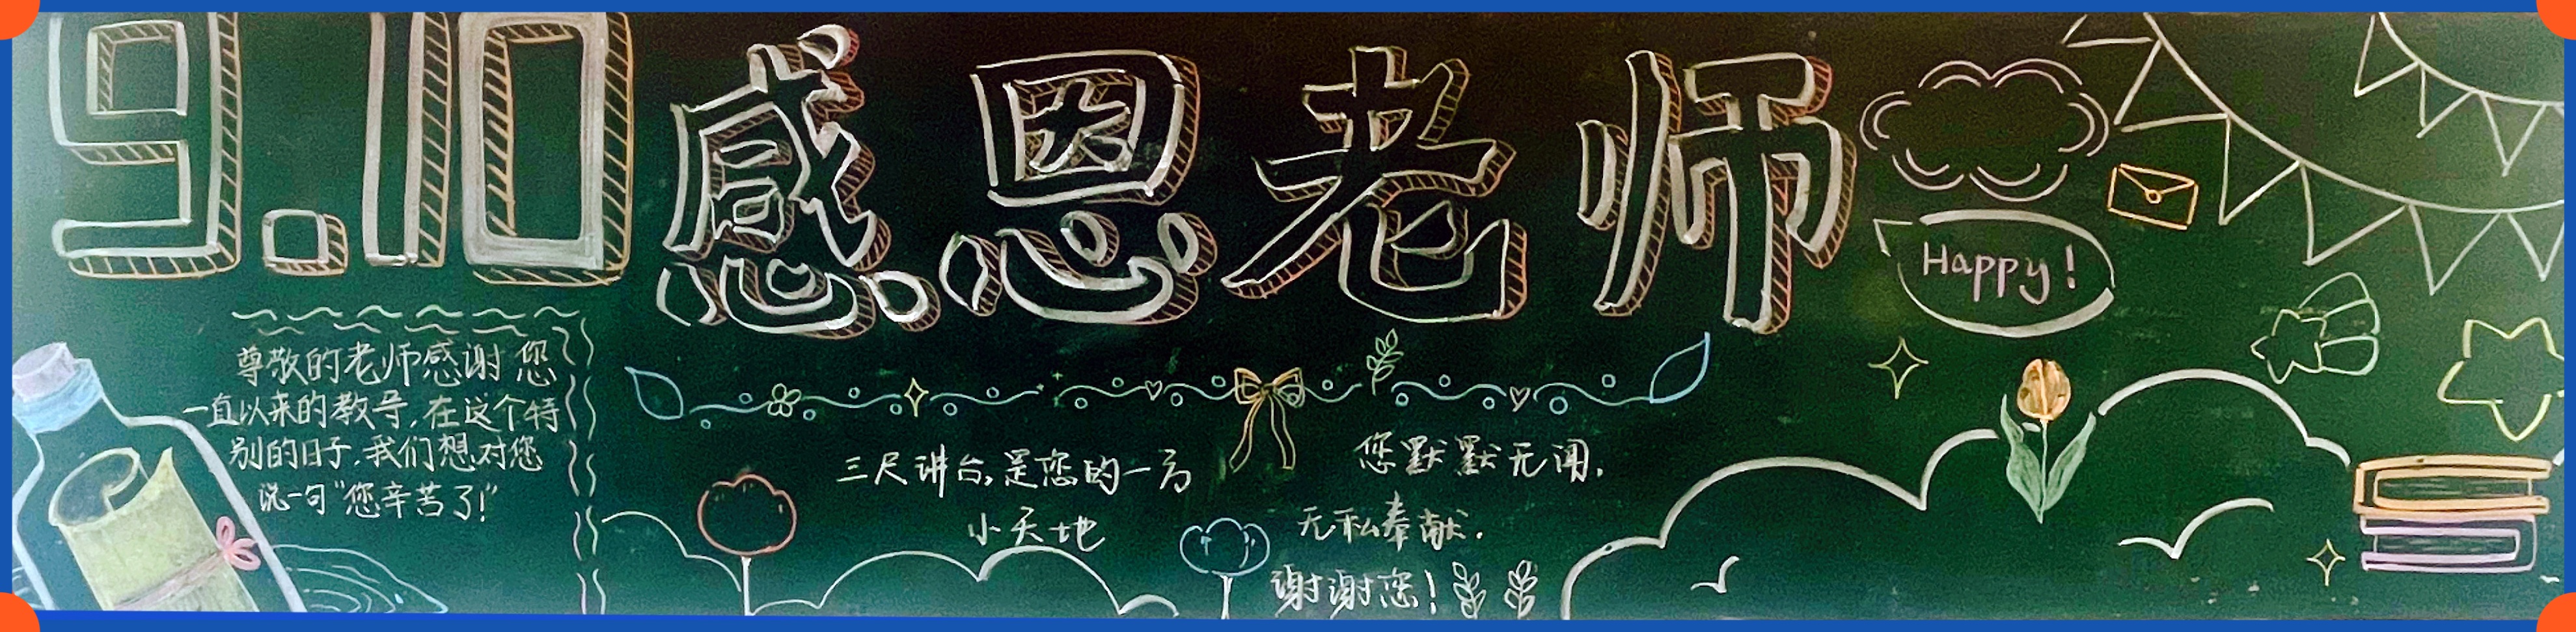 9.10
感恩老师
Happy!
尊敬的老师感谢您
一直以来的教导,在这个特
别的日子,我们想对您
说一句"您辛苦了!"
三尺讲台,是您的一方
小天地
您默默无闻,
无私奉献.
谢谢您!